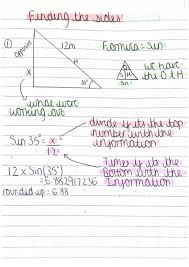 Finding the sides
① opposite 12m Formula = Sin
H
x 35°
S O H
we have the O & H
what we're working out
Sin 35° = x/12
divide if its the top number with the information
Times if its the bottom with the information
12 x Sin(35°)
= 6.882917236
rounded up = 6.88